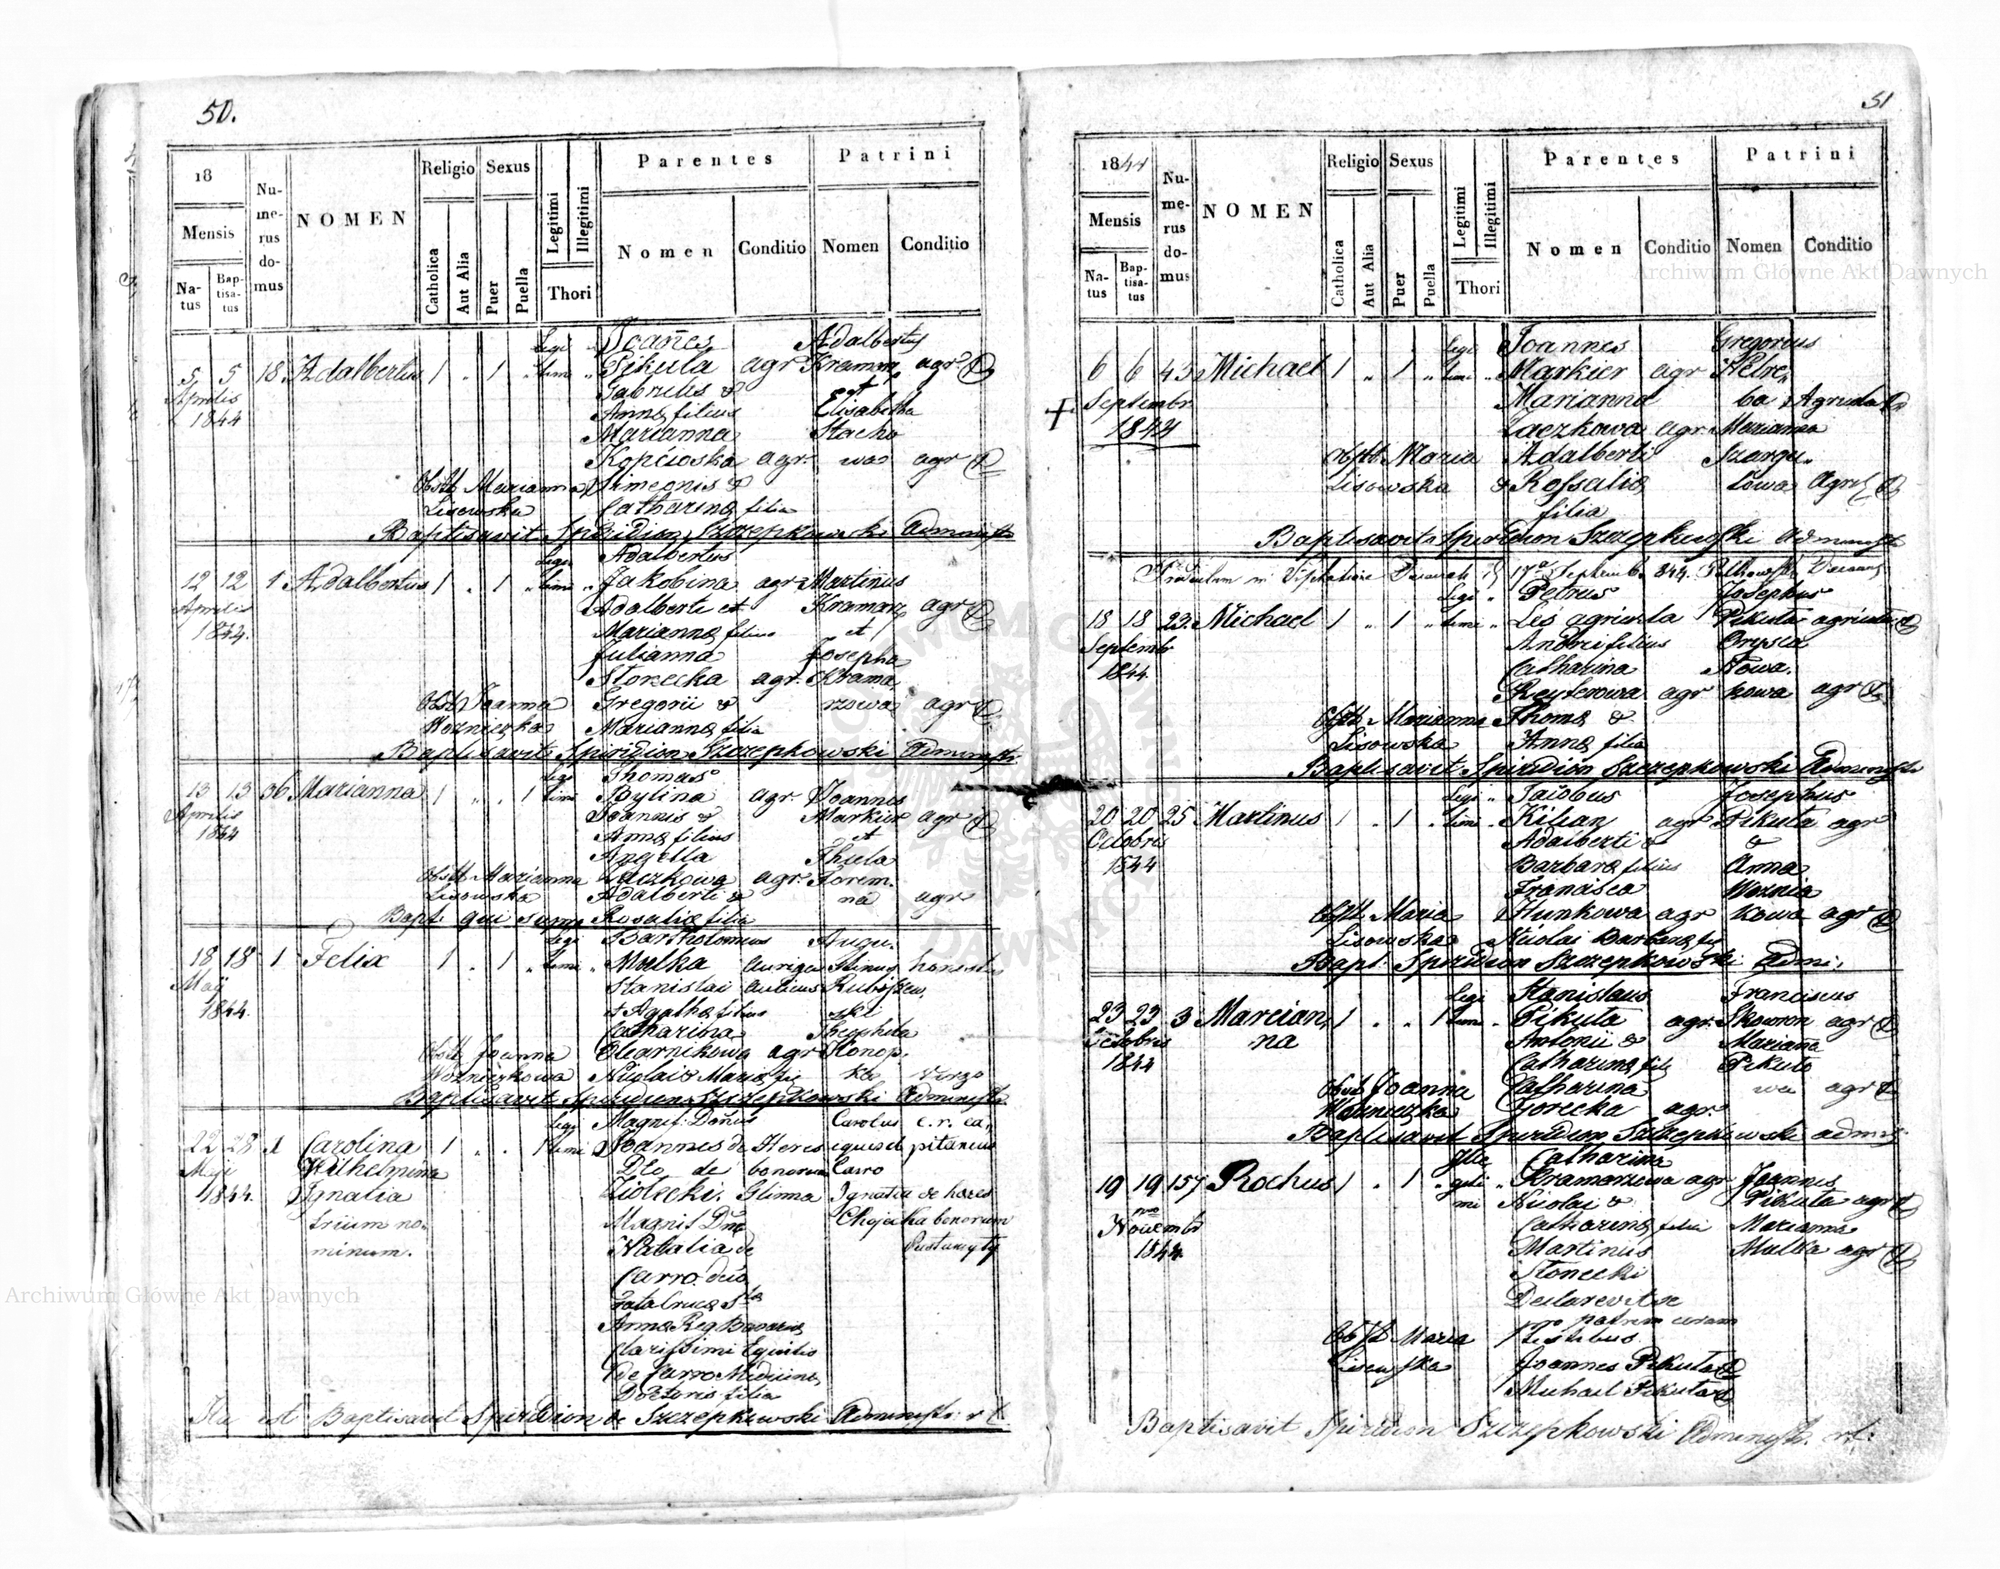 50.
18
Mensis
Natus
Baptisatus
Numerus domus
NOMEN
Religio
Catholica
Aut Alia
Sexus
Puer
Puella
Legitimi
Illegitimi
Thori
Parentes
Nomen
Conditio
Patrini
Nomen
Conditio
Legi Joannes Adalbertus
5 5 18 Adalbertus 1 " 1 " timi " Pikuta agr Kramarz agr
Aprilis Gabrielis & et
1844 Annae filius Elisabetha
Marianna Stacho
Kopcioska agr. wa agr
Obst. Marianna Simeonis &
Lisowska Catharinae filia
Baptisavit Spiridion Szczepkowski Administr
Legi Adalbertus
12 12 1 Adalbertus 1 " 1 " timi " Jakobina agr Martinus
Aprilis Adalberti et Kramarz agr
1844. Mariannae filius et
Julianna Josepha
Stonecka agr. Krama
Obst Joanna Gregorii & rzowa agr
Wozniczka Mariannae filia
Baptisavit Spiridion Szczepkowski Administr.
Legi Thomas
13 13 36 Marianna 1 " " 1 timi Bylina agr. Joannes
Aprilis Joannis & Markier agr
1844 Annae filius et
Angella Thecla
Obst Marianna Laczkowa agr. Forem.
Lisowska Adalberti & na agr
Bapt. qui supra Rosaliae filia
Legi Bartholomeus Augu.
18 18 1 Felix 1 " 1 " timi " Malka auriga stinus honestus
Maij Stanislai aulicus Kuboszew
1844. & Agathae filius ski
Catharina Theophila
Obst Joanna Olearnikowa agr Konop.
Wozniczkowa Nicolai & Mariae fil ka virgo
Baptisavit Spiridion Szczepkowski Administr.
Legi Magnif. Dominus Carolus c. r. ca.
22 28 1 Carolina 1 " " 1 timi Joannes de Heres eques de pitaneus
Maji Wilhelmina Dto de bonorum Carro
1844. Ignatia Ziolecki. Glinna Ignatia de haeres
trium no. Magnif Dna Chojecka bonorum
minum. Natalia de Pustomyty
Carro
Annae Reg Bavariae
Clarissimi Equitis
de Carro Medicinae
Doctoris filia
Baptisavit Spiridion de Szczepkowski Administr: r l.
51
1844
Mensis
Natus
Baptisatus
Numerus domus
NOMEN
Religio
Catholica
Aut Alia
Sexus
Puer
Puella
Legitimi
Illegitimi
Thori
Parentes
Nomen
Conditio
Patrini
Nomen
Conditio
Legi Joannes Gregorius
6 6 43 Michael 1 " 1 " timi " Markier agr Hetre.
+ Septembr Marianna ba Agricola
1844 Laczkowa agr. Marianna
Obstt. Maria Adalberti Szargu.
Lisowska & Rossaliae lowa Agric
filia
Baptisavit Spiridion Szczepkowski Administ
Productum in Visitatione Decanali 17a Septemb. 844.
Legi " Petrus Josephus
18 18 23. Michael 1 " 1 " timi " Les agricola Pikuta agricola
Septembr Andrei filius Orysia
1844. Catharina Nowa.
Reyterowa agr kowa agr
Obstt. Marianna Thomae &
Lisowska Annae filia
Baptisavit Spiridion Szczepkowski Administr
Legi " Jacobus Josephus
20 20 25 Martinus 1 " 1 " timi " Kilian agr Pikuta agr
Octobris Adalberti & &
1844 Barbarae filius Anna
Francisca Woznia
Obstt Maria Hunkowa agr kowa agr
Lisowska Nicolai Barbarae fil
Bapt. Spiridion Szczepkowski Admi.
Legi Stanislaus Franciscus
23 23 3 Marcian. 1 " " 1 timi " Pikuta agr. Skowron agr
Octobris na Antonii & Marianna
1844 Catharinae fili Pikuto
Obst Joanna Catharina wa agr
Wozniczka Gorecka agr.
Baptisavit Spiridion Szczepkowski admi.
Ille Catharina
19 19 157 Rochus 1 " 1 " giti " Kramarzowa agr Joannes
mi Nicolai & Pikuta agr
Novembr Catharinae filia Marianna
1844. Martinus Malka agr
Stonecki
Declarevit se
pro patrem coram
Obstt Maria Testibus
Lisowska Joannes Pikuta
Michael Pikuta
Baptisavit Spiridion Szczepkowski Administr. r l.
Archiwum Główne Akt Dawnych
Archiwum Główne Akt Dawnych